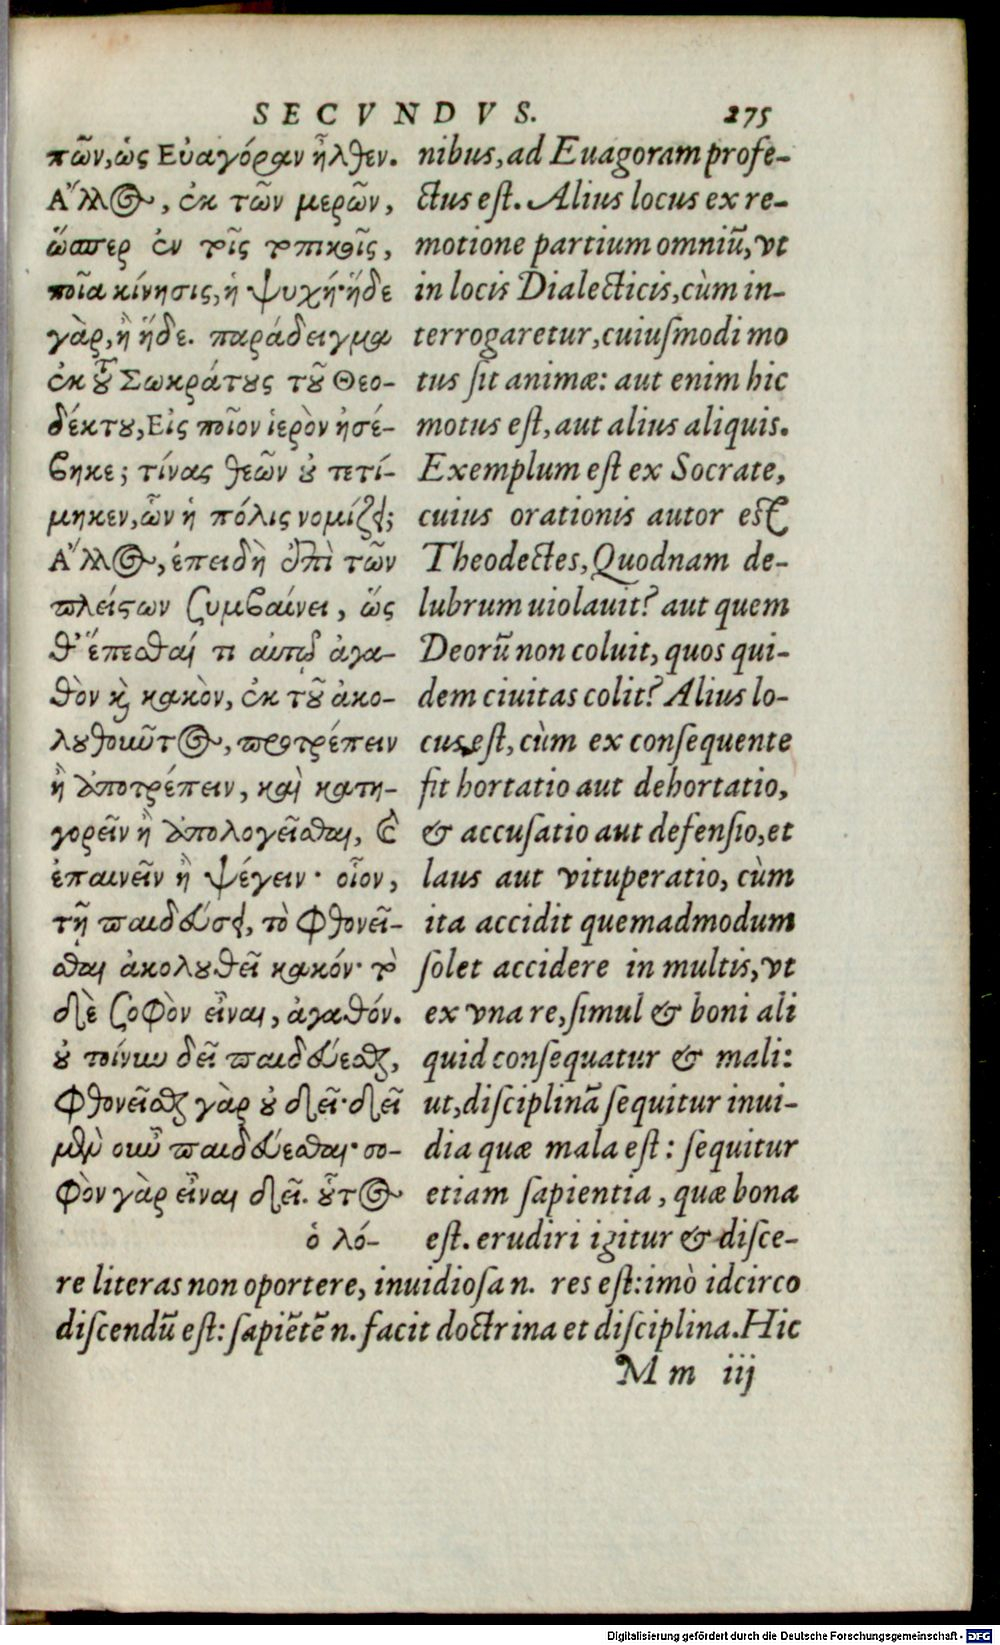 SECVNDVS. 275
πῶν, ὡς Εὐαγόραν ἦλθεν.
Ἄλλος, ἐκ τῶν μερῶν,
ὥσπερ ἐν τοῖς τοπικοῖς,
ποῖα κίνησις, ἡ ψυχή· ἥδε
γὰρ, ἢ ἥδε. παράδειγμα
ἐκ τοῦ Σωκράτους τοῦ Θεο-
δέκτου, Εἰς ποῖον ἱερὸν ἠσέ-
βηκε; τίνας θεῶν οὐ τετί-
μηκεν, ὧν ἡ πόλις νομίζει;
Ἄλλος, ἐπειδὴ ἐπὶ τῶν
πλείστων συμβαίνει, ὥς
θ' ἕπεσθαί τι αὐτῷ ἀγα-
θὸν καὶ κακὸν, ἐκ τοῦ ἀκο-
λουθοῦντος, προτρέπειν
ἢ ἀποτρέπειν, καὶ κατη-
γορεῖν ἢ ἀπολογεῖσθαι, καὶ
ἐπαινεῖν ἢ ψέγειν· οἷον,
τῇ παιδεύσει, τὸ φθονεῖ-
σθαι ἀκολουθεῖ κακόν· τὸ
δὲ σοφὸν εἶναι, ἀγαθόν.
οὐ τοίνυν δεῖ παιδεύεσθαι,
φθονεῖσθαι γὰρ οὐ δεῖ· δεῖ
μὲν οὖν παιδεύεσθαι· σο-
φὸν γὰρ εἶναι δεῖ. οὗτος
ὁ λό-
nibus, ad Euagoram profe-
ctus est. Alius locus ex re-
motione partium omniũ, vt
in locis Dialecticis, cùm in-
terrogaretur, cuiusmodi mo
tus sit animæ: aut enim hic
motus est, aut alius aliquis.
Exemplum est ex Socrate,
cuius orationis autor est
Theodectes, Quodnam de-
lubrum uiolauit? aut quem
Deorũ non coluit, quos qui-
dem ciuitas colit? Alius lo-
cus est, cùm ex consequente
fit hortatio aut dehortatio,
& accusatio aut defensio, et
laus aut vituperatio, cùm
ita accidit quemadmodum
solet accidere in multis, vt
ex vna re, simul & boni ali
quid consequatur & mali:
ut, disciplinã sequitur inui-
dia quæ mala est: sequitur
etiam sapientia, quæ bona
est. erudiri igitur & disce-
re literas non oportere, inuidiosa n. res est: imò idcirco
discendũ est: sapiẽtẽ n. facit doctrina et disciplina. Hic
M m iij
Digitalisierung gefördert durch die Deutsche Forschungsgemeinschaft - DFG